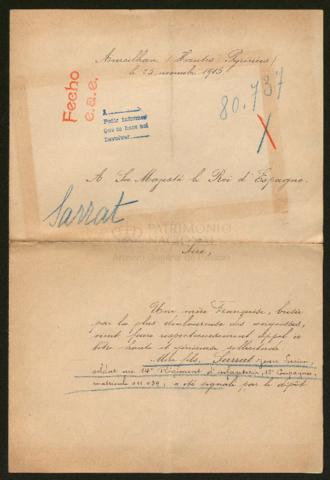 Aureilhan (Hautes-Pyrénées)
le 23 novembre 1915
Fecho
c.a.e.
Pedir informes
Que se hace así
80.737
X
A Sa Majesté le Roi d'Espagne.
Sarrat
PATRIMONIO
NACIONAL
Sire,
Une mère Française, brisée
par la plus douloureuse des angoisses,
vient faire respectueusement appel à
votre haute et généreuse sollicitude
Mon fils, Sarrat Jean
soldat au 14e Régiment d'infanterie, 11e Compagnie,
matricule 011.039, a été signalé par le dépôt